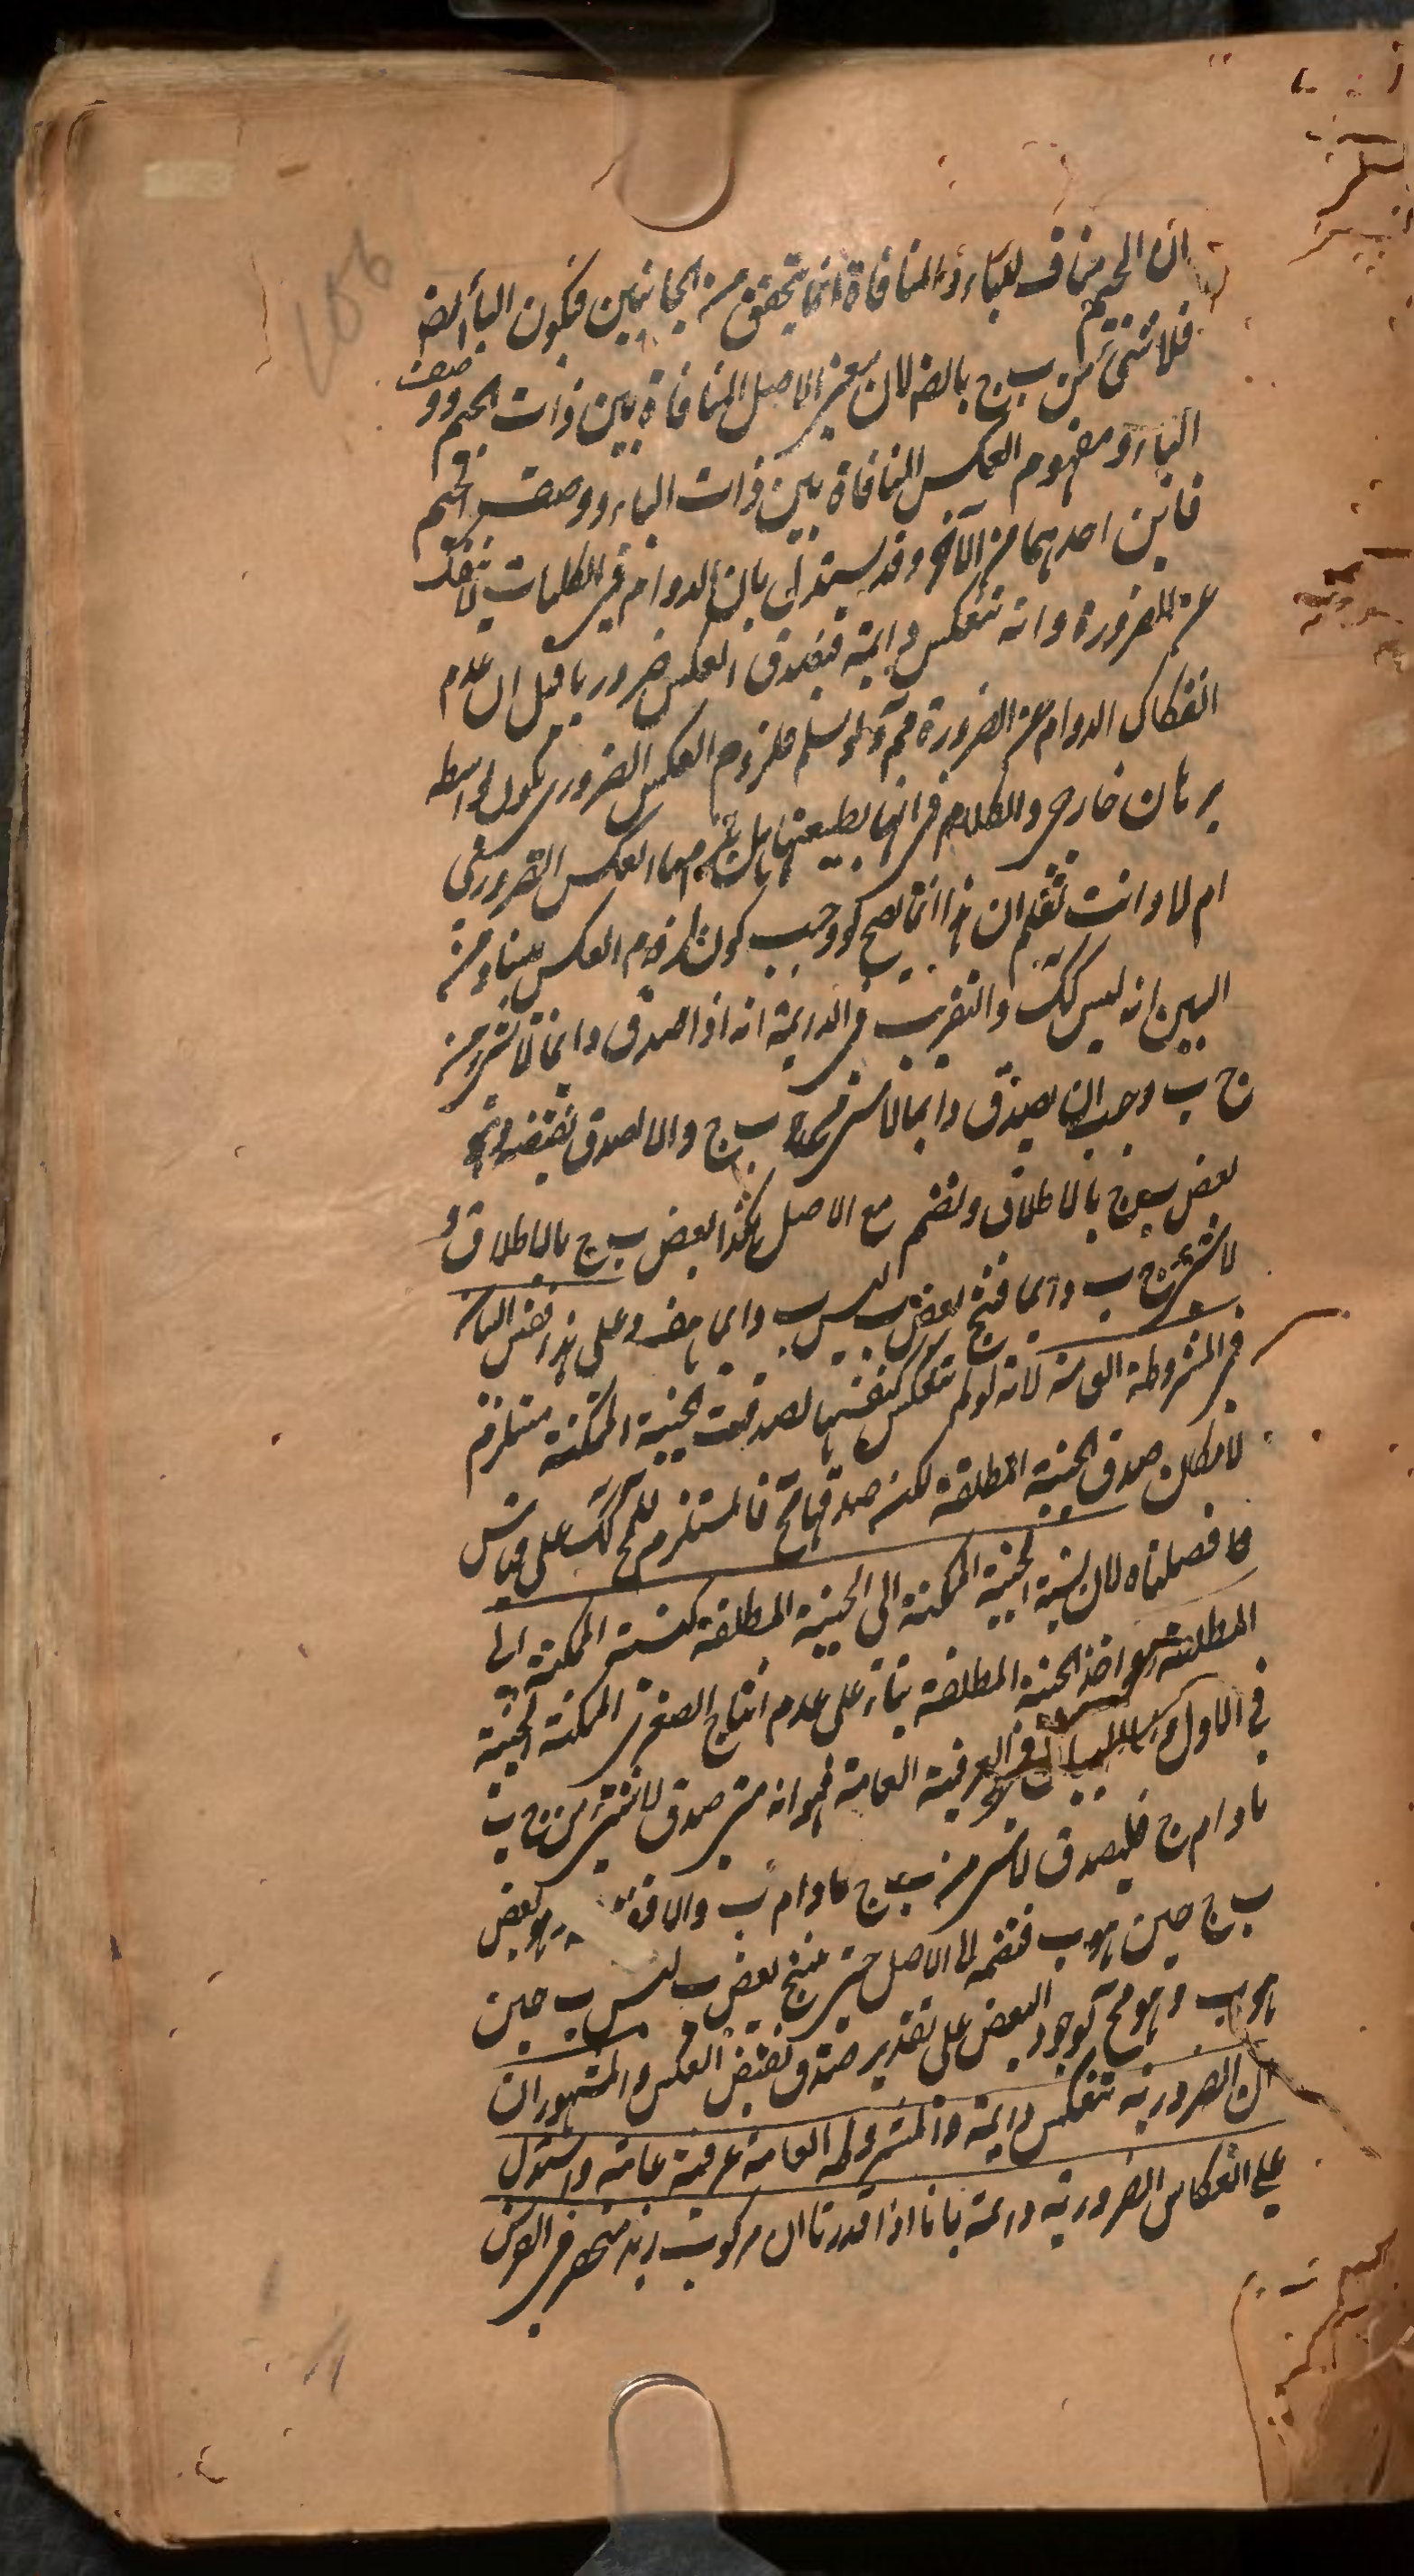 ان الجيم مناف للباء والمنافاة انما يتحقق من الجانبين فيكون الباء ايضا
فلا شئ من ب ج بالضه لان معنى الاصل المنافاة بين ذات الجيم ووصف
الباء ومفهوم العكس المنافاة بين ذات الباء ووصف الجيم
فاين احدهما من الآخر وقد يستدل بان الدوام فى الكليات لا ينفك
عن الضرورة وانه تنعكس دايمة فيصدق العكس ضروريا قيل ان عدم
انفكاك الدوام عن الضرورة مم ولو سلم فلزوم العكس الضرورى يكون بواسطه
برهان خارجى والكلام فى انها بطبيعتها هل يلزمها العكس الضرورى
ام لا وانت تعلم ان هذا انما يصح لو وجب كون لزوم العكس بينا ومن
البين انه ليس كك والتقريب فى الدايمة انه اذا صدق دايما لا شئ من
ج ب وجب ان يصدق دايما لا شئ من ب ج والا لصدق نقيضه وهو
بعض ب ج بالاطلاق ونضم مع الاصل هكذا بعض ب ج بالاطلاق و
لا شئ من ج ب دايما فينتج بعض ب ليس ب دايما هف وعلى هذا فقس البيان
فى المشروطة العامة لانه لو لم تنعكس كنفسها لصدقت الحينية الممكنة مستلزم
لامكان صدق الحينية المطلقة لكن صدقها مح فالمستلزم للمح كك على قياس
ما فصلناه لان نسبة الحينية الممكنة الى الحينية المطلقة كنسبة الممكنة الى
المطلقة واخذ الحينية المطلقة بناء على عدم انتاج الصغرى الممكنة الحينية
فى الاول واما البيان فى العرفية العامة فهو انه متى صدق لا شئ من ج ب
ما دام ج فليصدق لا شئ من ب ج ما دام ب والا وهو بعض
ب ج حين هو ب فنضمه الى الاصل حتى ينتج بعض ب ليس ب حين
هو ب وهو مح لوجود البعض على تقدير صدق نقيض العكس والمشهور ان
ان الضرورية تنعكس دايمة والمشروطة العامة عرفية عامة واستدل
على انعكاس الضرورية دايمة بانا اذا قدرنا ان مركوب زيد منحصر فى الفرس